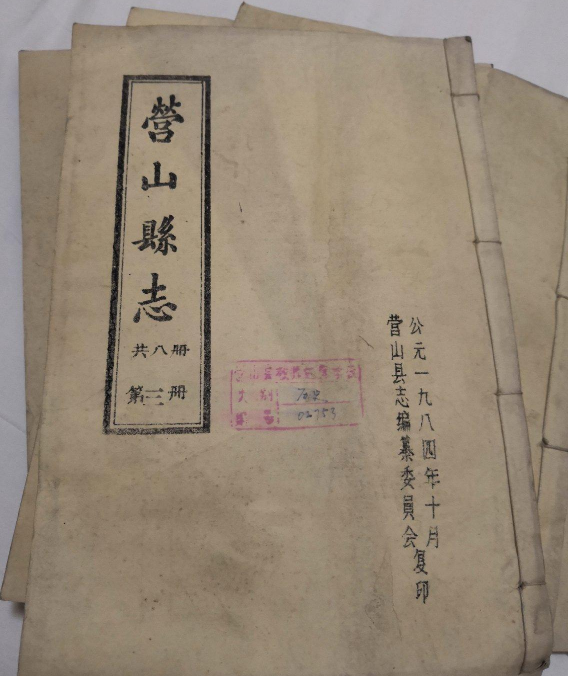 营山縣志
共八册
第三册
公元一九八四年十月
营山县志编纂委員会复印
山县
类别
02753